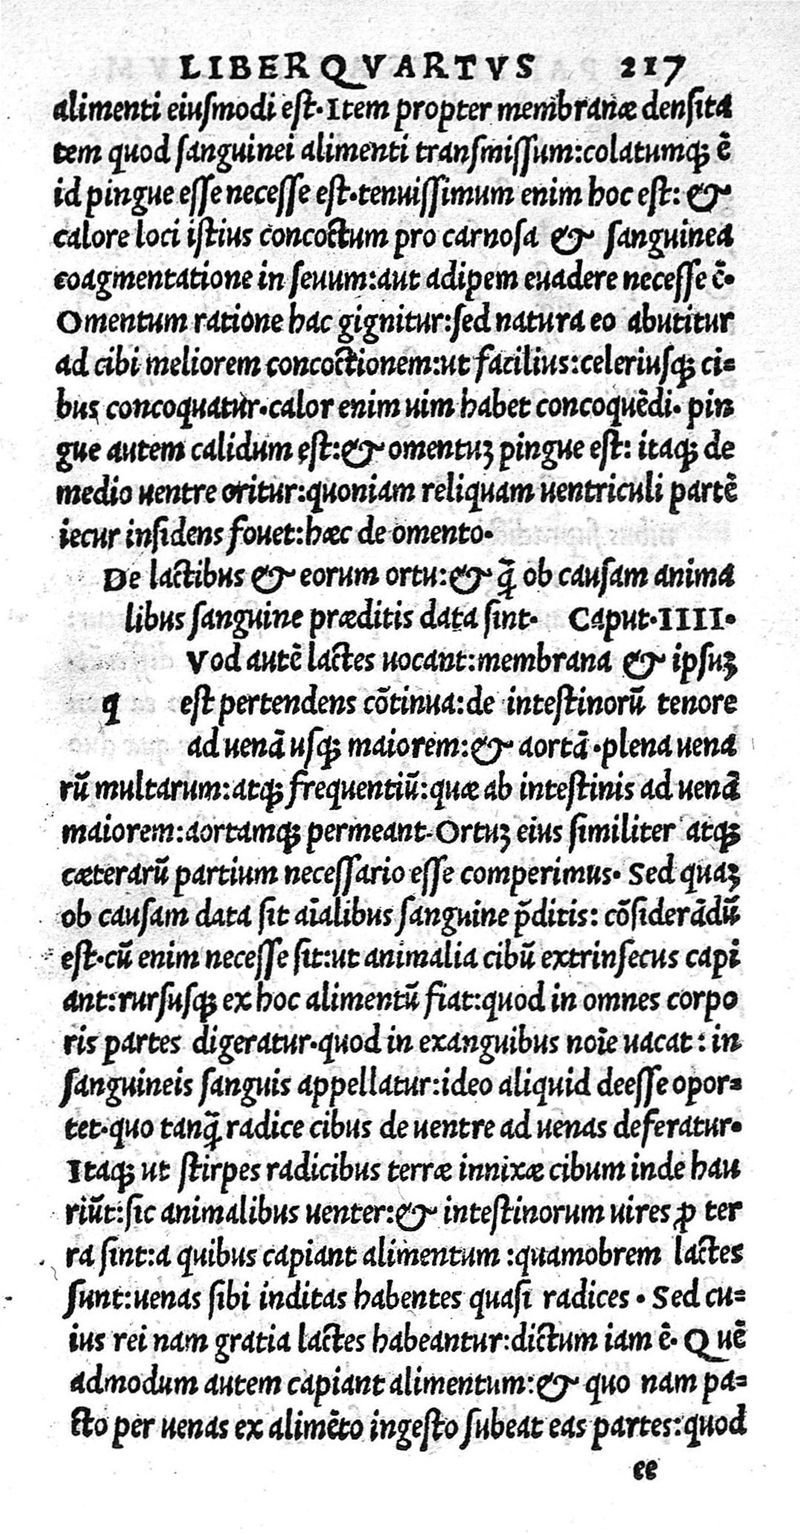 LIBER QVARTVS 217
alimenti eiusmodi est. Item propter membranæ densita
tem quod sanguinei alimenti transmissum:colatumqꝫ ē
id pingue esse necesse est.tenuissimum enim hoc est: &
calore loci istius concoctum pro carnosa & sanguinea
coagmentatione in seuum:aut adipem euadere necesse ē.
Omentum ratione hac gignitur:sed natura eo abutitur
ad cibi meliorem concoctionem:ut facilius:celeriusqꝫ ci=
bus concoquatur.calor enim uim habet concoquēdi. pin
gue autem calidum est:& omentuꝫ pingue est: itaqꝫ de
medio uentre oritur:quoniam reliquam uentriculi partē
iecur insidens fouet:hæc de omento.
De lactibus & eorum ortu:& q̄ ob causam anima
libus sanguine præditis data sint. Caput.IIII.
Vod autē lactes uocant:membrana & ipsuꝫ
q est pertendens cōtinua:de intestinorū tenore
ad uenā usqꝫ maiorem:& aortā.plena uena
rū multarum:atqꝫ frequentiū:quæ ab intestinis ad uenā
maiorem:aortamqꝫ permeant.Ortuꝫ eius similiter atqꝫ
cæterarū partium necessario esse comperimus. Sed quaꝫ
ob causam data sit aīalibus sanguine p̄ditis: cōsiderādū
est.cū enim necesse sit:ut animalia cibū extrinsecus capi
ant:rursusqꝫ ex hoc alimentū fiat:quod in omnes corpo
ris partes digeratur.quod in exanguibus noīe uacat: in
sanguineis sanguis appellatur:ideo aliquid deesse opor=
tet.quo tanq̄ radice cibus de uentre ad uenas deferatur.
Itaqꝫ ut stirpes radicibus terræ innixæ cibum inde hau
riūt:sic animalibus uenter:& intestinorum uires ꝓ ter
ra sint:a quibus capiant alimentum :quamobrem lactes
sunt:uenas sibi inditas habentes quasi radices . Sed cu=
ius rei nam gratia lactes habeantur:dictum iam ē. Quē
admodum autem capiant alimentum:& quo nam pa=
cto per uenas ex alimēto ingesto subeat eas partes:quod
ee